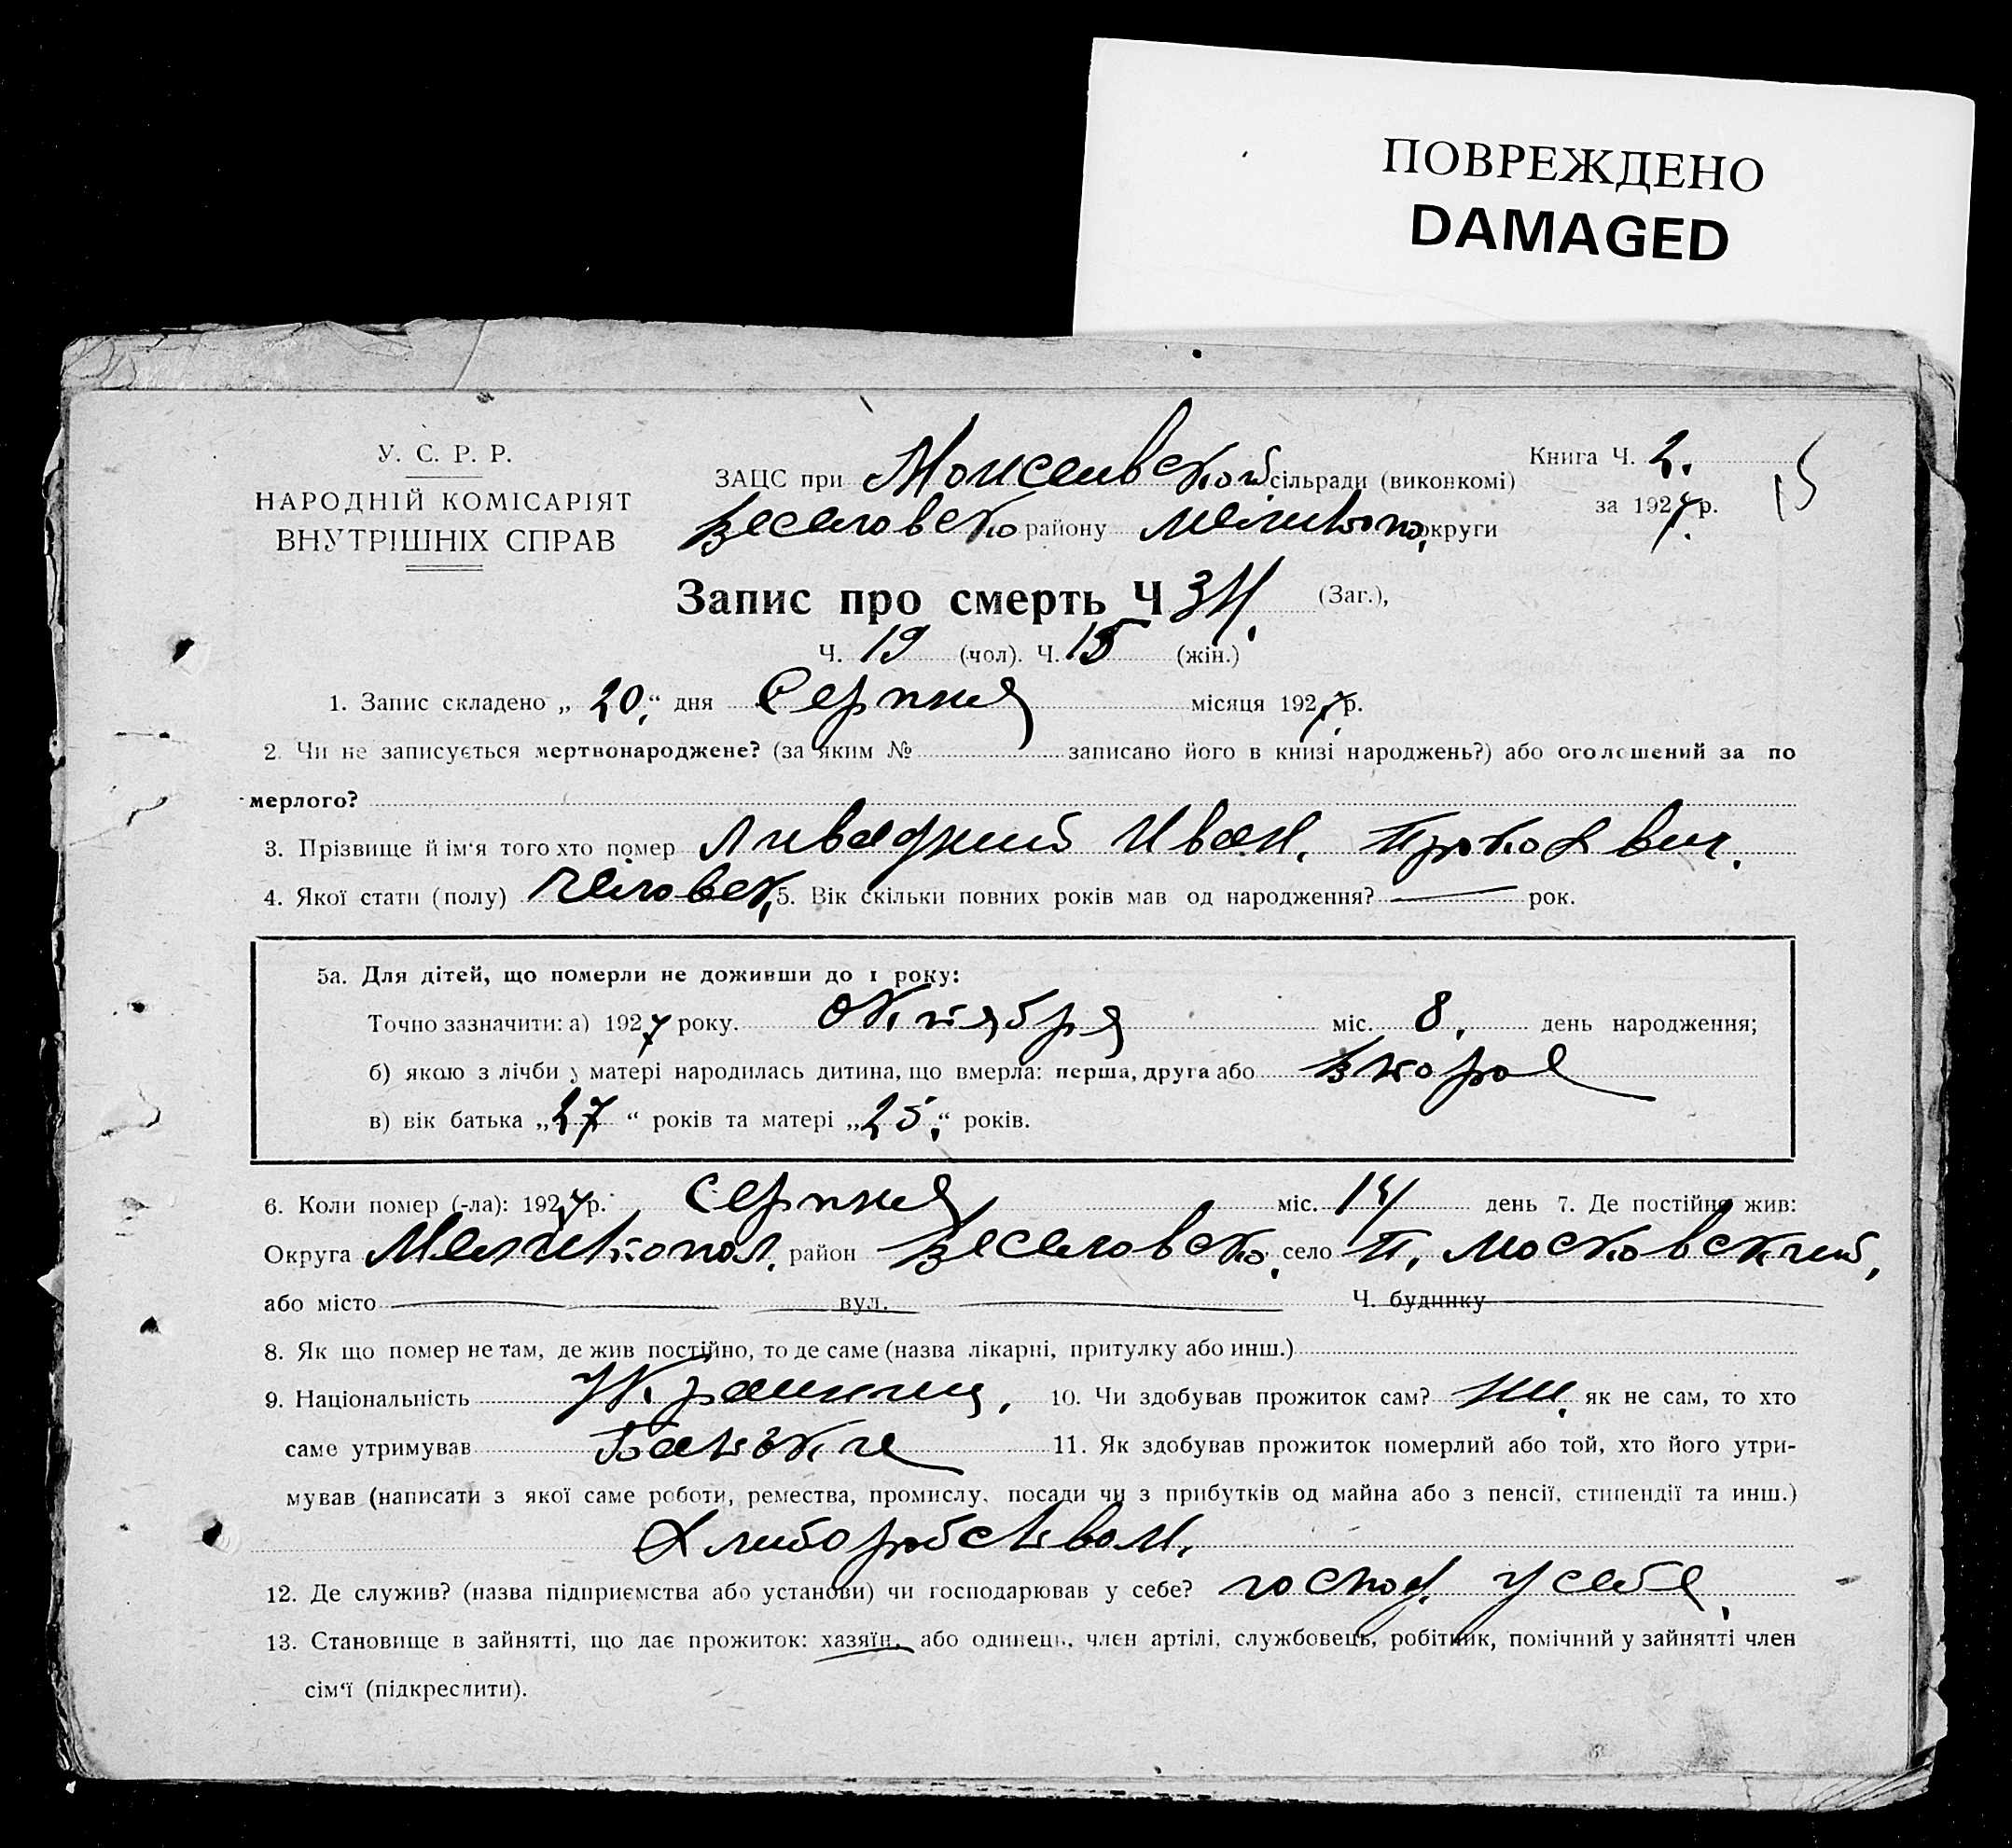 ПОВРЕЖДЕНО
DAMAGED
У. С. Р. Р.
НАРОДНІЙ КОМІСАРІЯТ
ВНУТРІШНІХ СПРАВ
ЗАЦС при Моисеивской сільради (виконкомі)
Веселовско району Мелитопо. округи
Книга Ч. 2.
за 1927 р.
15
Запис про смерть Ч 34. (Заг.),
Ч. 19 (чол). Ч. 15 (жін.)
1. Запис складено „ 20. “ дня Серпня місяця 1927 р.
2. Чи не записується мертвонароджене? (за яким № записано його в книзі народжень?) або оголошений за по
мерлого?
3. Прізвище й ім‘я того хто помер Ливадний Иван. Прокофвич.
4. Якої стати (полу) человек. 5. Вік скільки повних років мав од народження? — рок.
5а. Для дітей, що померли не доживши до 1 року:
Точно зазначити: а) 1927 року. Октября міс. 8. день народження;
б) якою з лічби у матері народилась дитина, що вмерла: перша, друга або втора
в) вік батька „27“ років та матері „25.“ років.
6. Коли помер (-ла): 1927 р. Серпня міс. 14 день 7. Де постійно жив:
Округа Мелитопол. район Веселовско. село П. Московский,
або місто вул. Ч. будинку
8. Як що помер не там, де жив постійно, то де саме (назва лікарні, притулку або инш.)
9. Національність Украинец, 10. Чи здобував прожиток сам? ни. як не сам, то хто
саме утримував Батько 11. Як здобував прожиток померлий або той, хто його утри-
мував (написати з якої саме роботи, ремества, промислу, посади чи з прибутків од майна або з пенсії, стипендії та инш.)
Хлиборобством.
12. Де служив? (назва підприємства або установи) чи господарював у себе? господ. у себе,
13. Становище в зайнятті, що дає прожиток: хазяїн, або одинець, член артілі, службовець, робітник, помічний у зайнятті член
сім‘ї (підкреслити).